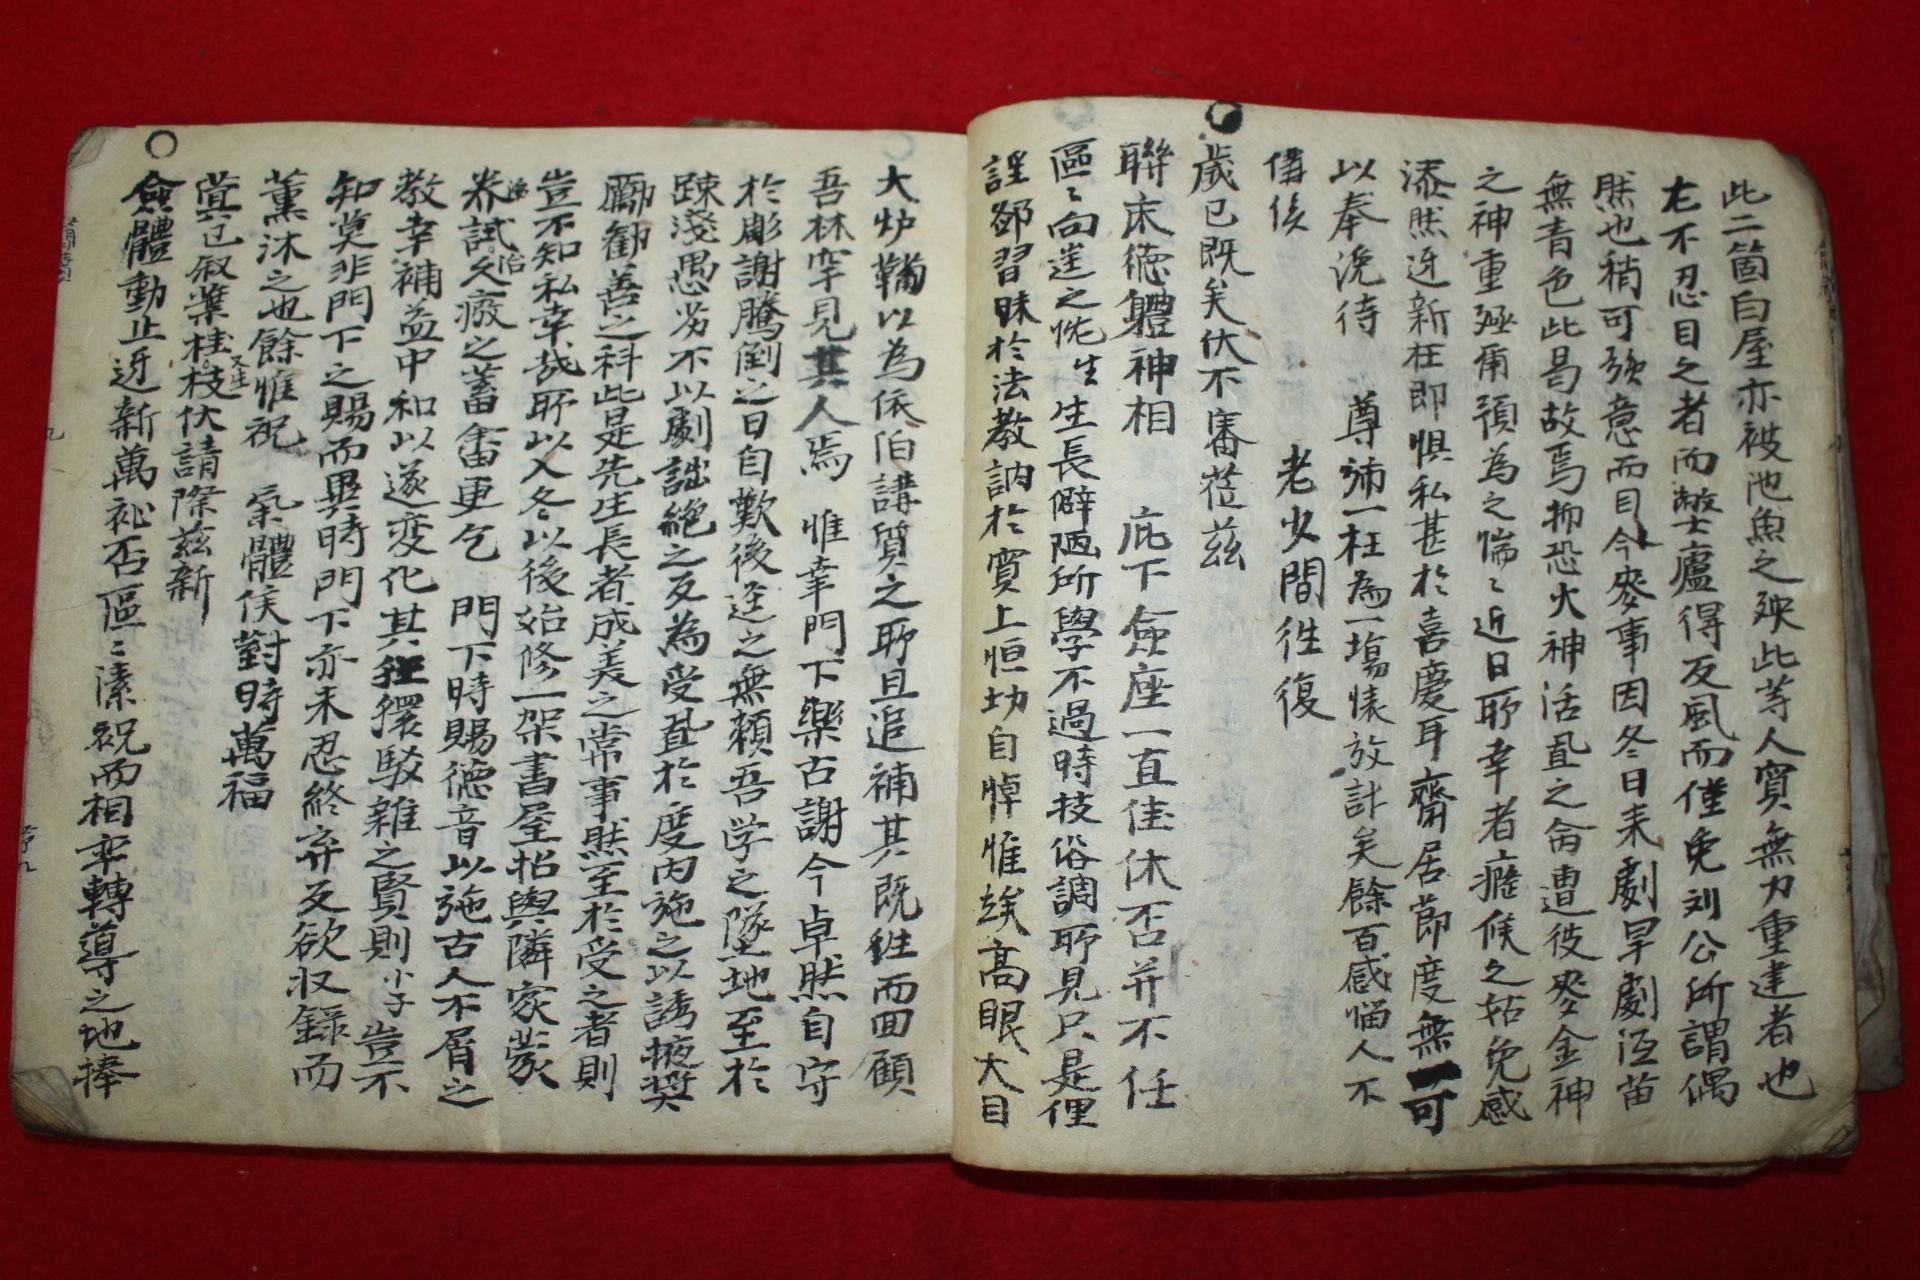 此二箇白屋亦被池魚之殃此等人實無力重建者也
尤不忍目之者而弊廬得反風而僅免刘公所謂偶
然也稍可强意而目今麥事因冬日来劇旱劇沍苗
無青色此曷故焉抑恐火神活直之侖遭彼麥金神
之神重殛甭預為之惴〻近日耶幸者癃候之姑免感
添然迓新在即惧私甚於喜慶耳齋居節度無可
以奉浼待 尊沛一枉為一塲懷放計矣餘百感惱人不
備候 老少間徃復
歲已既矣伏不審莅兹
聯床德體神相 庇下僉座一直佳休否并不任
區〻向𨓏之忱生生長僻陋所學不過時技俗調耶見只是俚
謡鄒習昧於法教訥於實上恒切自悼惟竢高眼大目
大炉鞴以為依 講質之耶且追補其既徃而回顧
吾林罕見其人焉 惟幸門下樂古謝今卓然自守
於彫謝騰倒之日自歎後送之無賴吾学之墜地至於
踈淺愚劣不以劇詘絶之反為受直於度内施之以誘掖奨
勵勧善之科此是先生長者成美之常事然至於受之者則
豈不知私幸哉耶以入冬以後始修一架書屋招與隣家蒙
养試久廢之蓄畬更乞 門下時賜德音以施古人不屑之
教幸補益中和以遂变化其狂獧駁雜之賢則小子豈不
知莫非門下之賜而異時門下亦未忍終弃反欲収録而
薫沐之也餘惟祝 氣體候對時萬福
蓂已叙葉桂枝又生伏請際兹新
僉體動止迓新萬祉否區〻溸祝而相率轉導之地捧